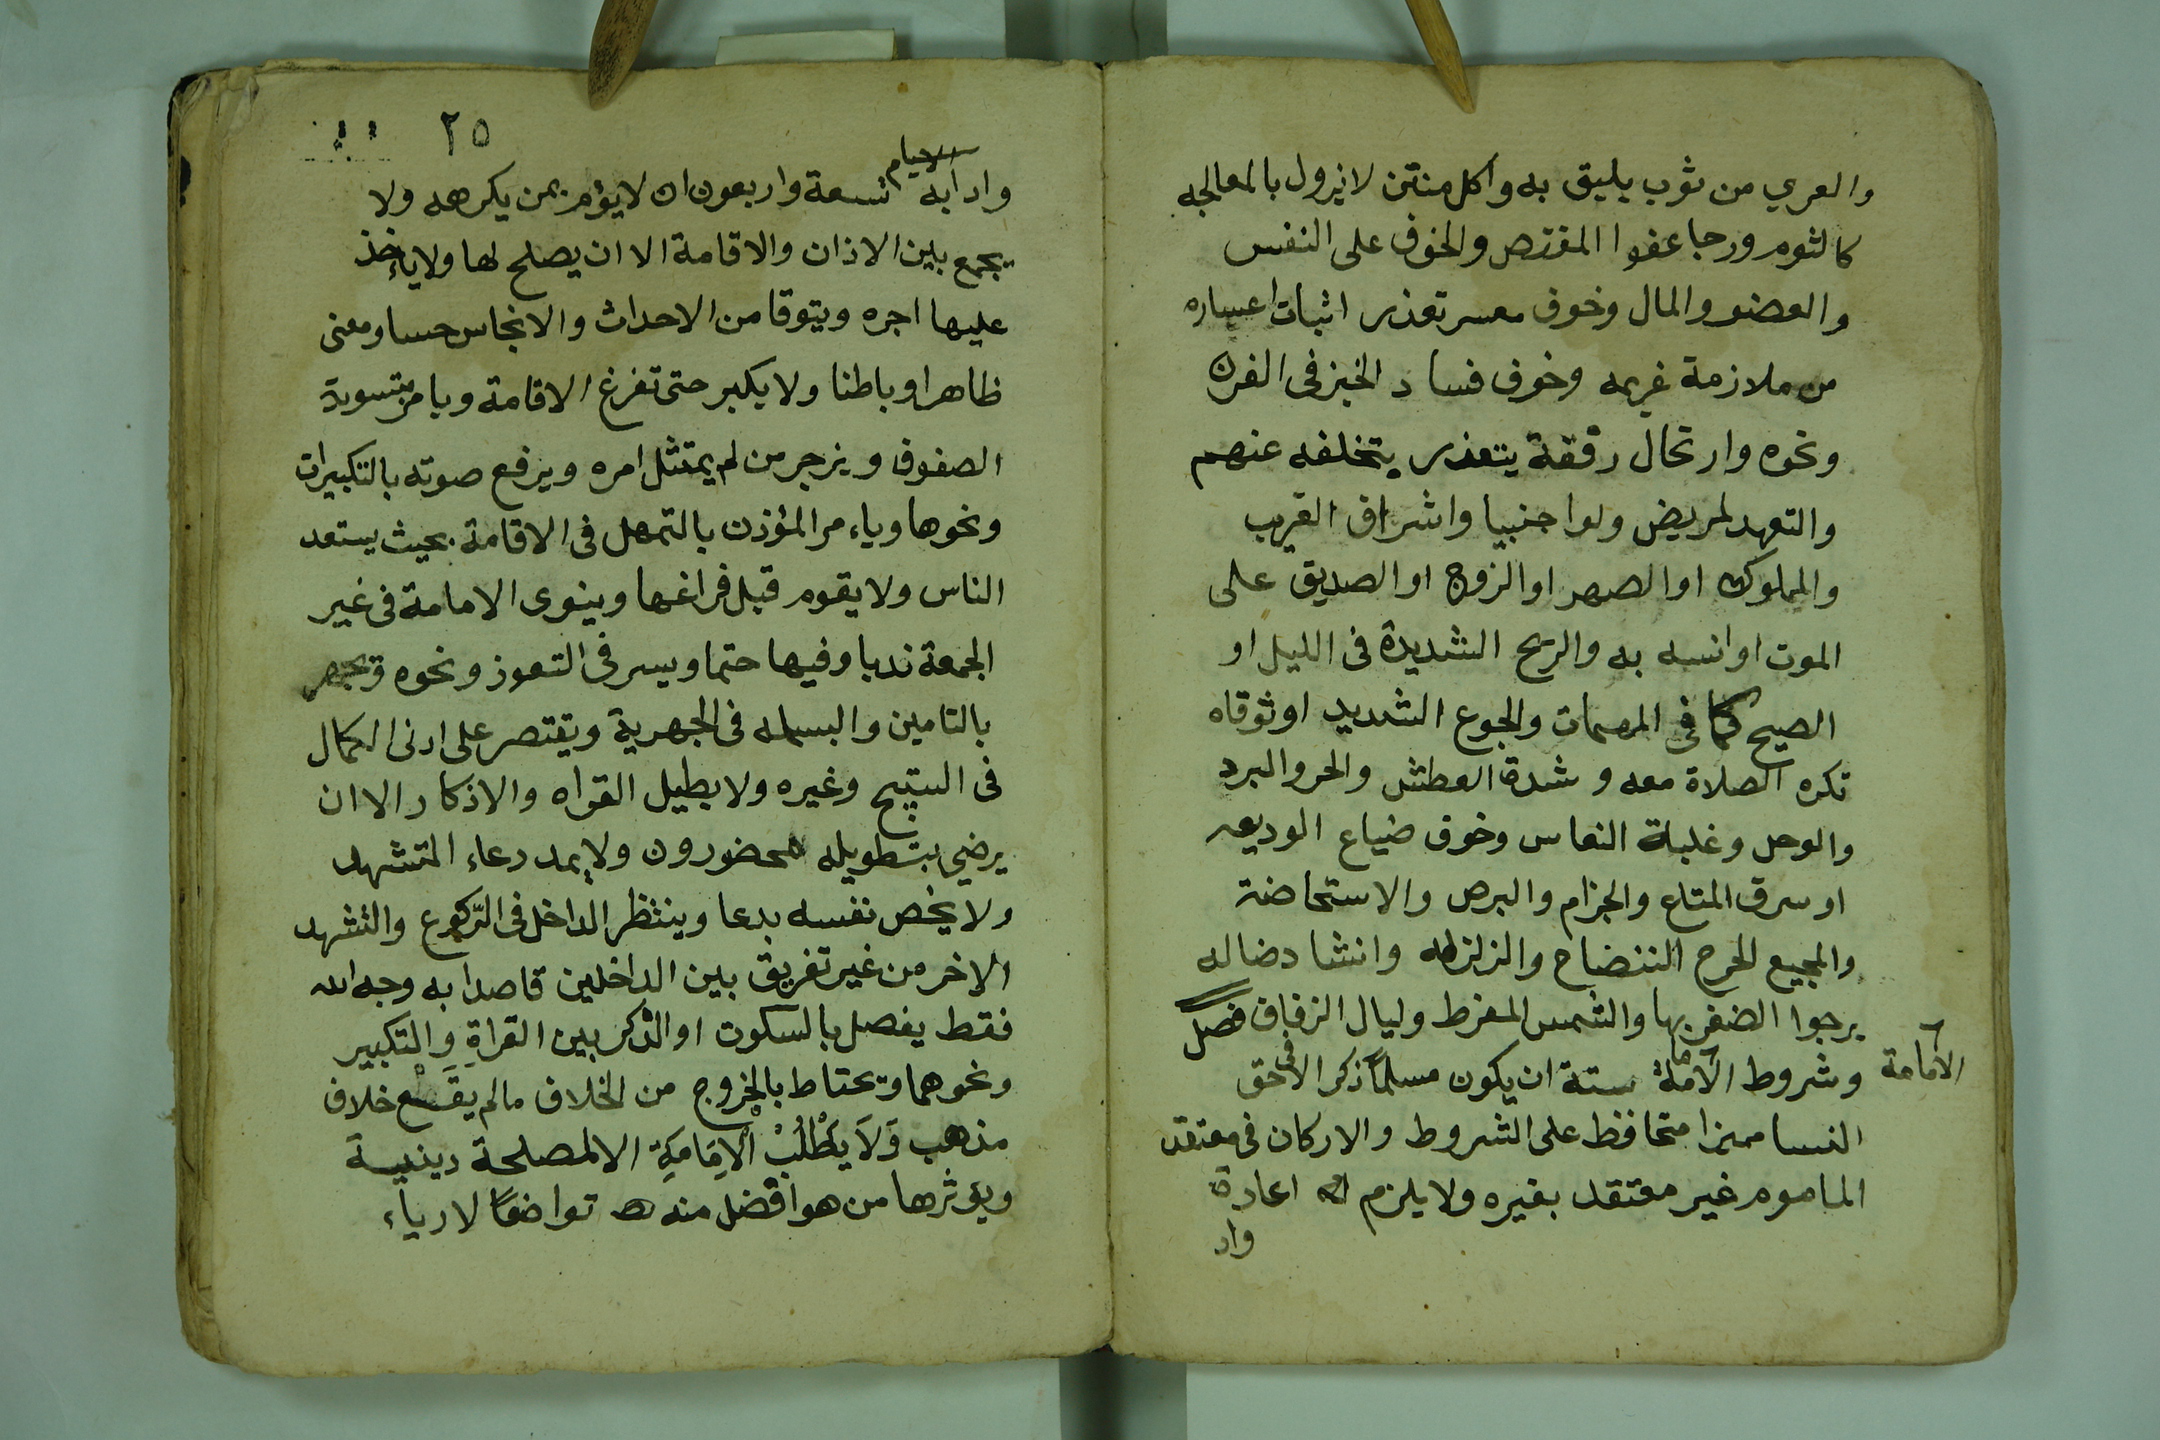 والعري من ثوب يليق به واكل منتن لا يزول بالمعالجه
كالثوم ورجا عفوا المقتص والخوف على النفس
والعضو والمال وخوف معسر تعذر اثبات اعساره
من ملازمة غريمه وخوف فساد الخبز فى الفرن
ونحوه وارتحال رفقة يتعذر بتخلفه عنهم
والتعهد لمريض ولو اجنبيا واشراف القريب
والمملوك او الصهر او الزوج او الصديق على
الموت او انسه به والريح الشديدة فى الليل او
الصبح كما فى المهمات والجوع الشديد او ثوقاه
تكره الصلاة معه و شدة العطش والحر والبرد
والوحل وغلبة النعاس وخوف ضياع الوديعه
او سرق المتاع والجزام والبرص والاستحاضة
والمجيع للجرح النضاح والزلزله وانشاد ضاله
يرجوا الضفر بها والشمس المفرط وليال الزفاف فصل
وشروط الامامة ستة ان يكون مسلما ذكر الا فى حق
الامامة
النسا مميزا متحافظ على الشروط والاركان فى معتقد
الماموم غير مقتقد بغيره ولا يلزم له اعادة
واد
٢٥
الامام
وادابه تسعة واربعون ان لا يؤم بمن يكرهه ولا
يجمع بين الاذان والاقامة الا ان يصلح لها ولا ياءخذ
عليها اجره ويتوقا من الاحداث والانجاس حسا ومعنى
ظاهرا وباطنا ولا يكبر حتى تفرغ الاقامة ويامر بتسوية
الصفوف وينزجر من لم يمتثل امره ويرفع صوته بالتكبيرات
ونحوها وياءمر المؤذن بالتمهل فى الاقامة بحيث يستعد
الناس ولا يقوم قبل فراغها وينوى الامامة فى غير
الجمعة ندبا وفيها حتما ويسر فى التعوذ ونحوه ويجهر
بالتامين والبسمله فى الجهرية ويقتصر على ادنى الكمال
فى التسبيح وغيره ولا يطيل القراه والاذكار الا ان
يرضي بتطويله محضورون ولا يمد دعاء التشهد
ولا يخص نفسه بدعا وينتظر الداخل فى الركوع والتشهد
الاخر من غير تفريق بين الداخلين قاصدا به وجه الله
فقط يفصل بالسكوت او الذكر بين القراةِ وَالتكبير
ونحوهما ويحتاط بالخروج من الخلاف مالم يقع خلاف
مذهب وَلَا يَطْلُبْ الْاِمَامَةِ الا لمصلحة دينية
ويؤثرها من هو افضل منه تواضعًا لا رياء